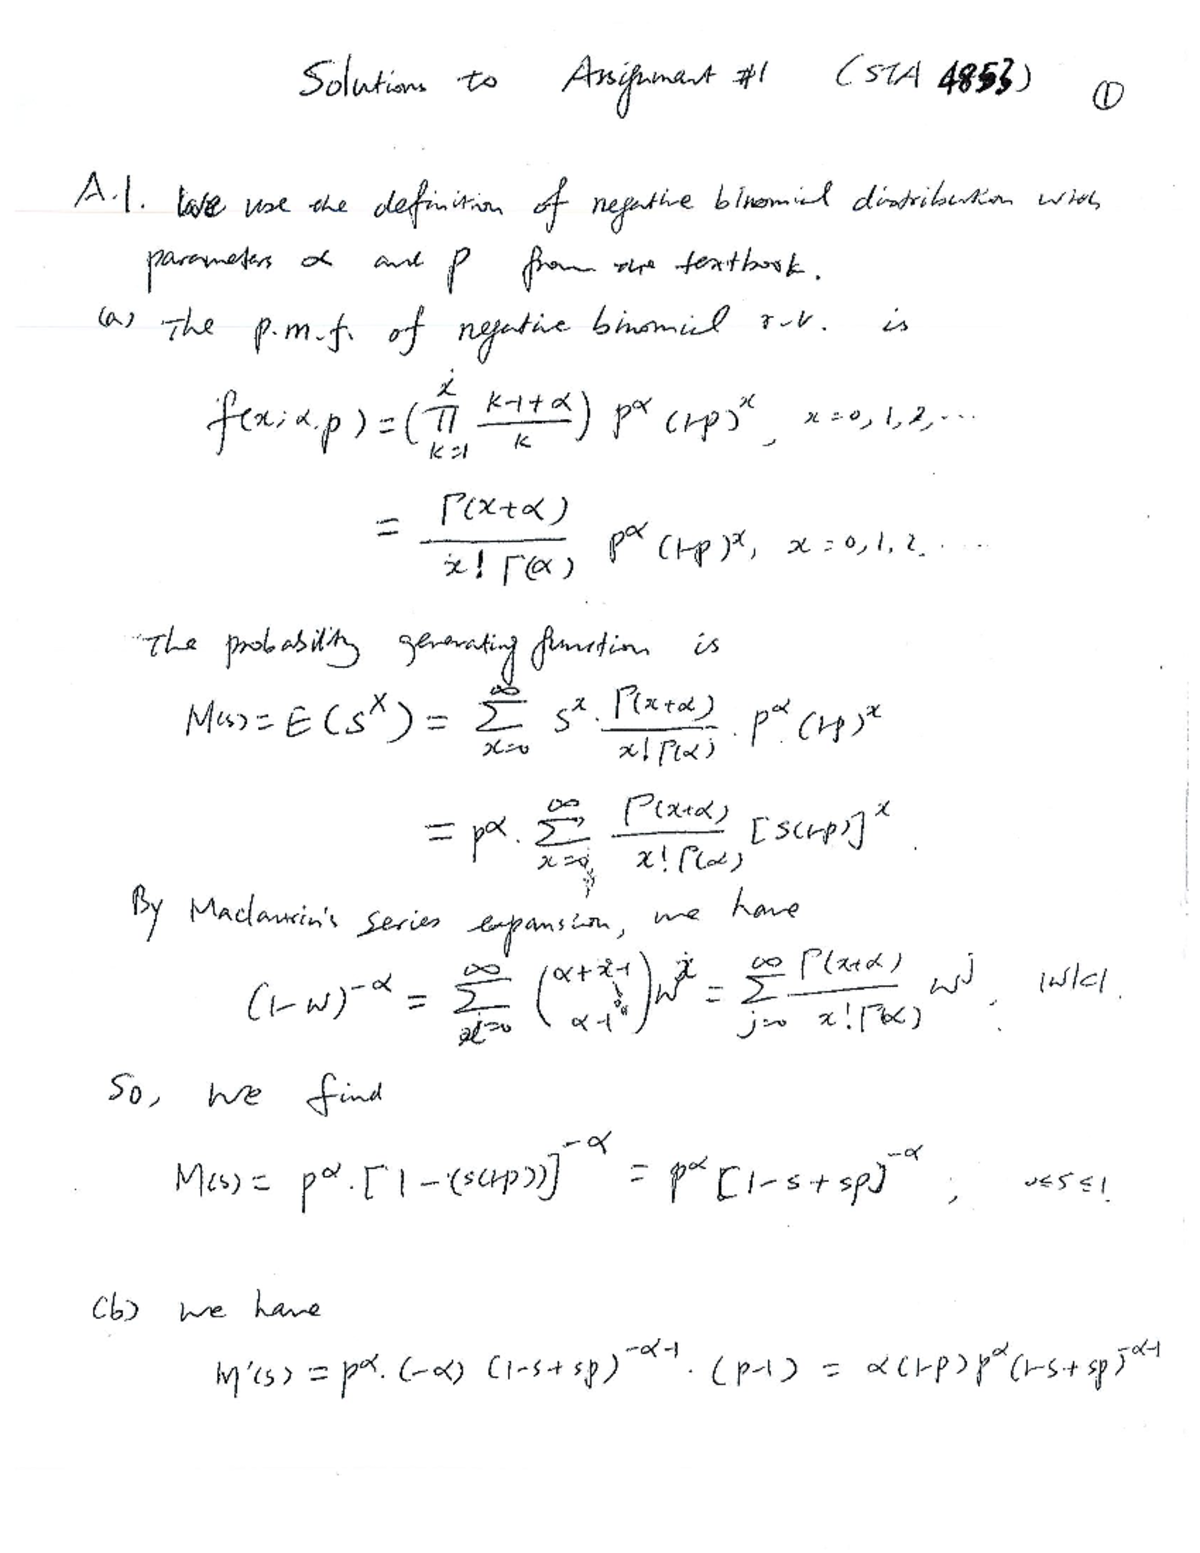 Solutions to Assignment #1 (STA 4853) ①
A.1. We use the definition of negative binomial distribution with
parameters α and p from the textbook.
(a) The p.m.f. of negative binomial r.v. is
f(x; α, p) = (∏_{k=1}^{x} (k-1+α)/k) p^α (1-p)^x, x = 0, 1, 2, ...
= Γ(x+α)/(x! Γ(α)) p^α (1-p)^x, x = 0, 1, 2, ....
The probability generating function is
M(s) = E(s^X) = ∑_{x=0}^{∞} s^x · Γ(x+α)/(x! Γ(α)) · p^α (1-p)^x
= p^α · ∑_{x=0}^{∞} Γ(x+α)/(x! Γ(α)) [s(1-p)]^x
By Maclaurin's series expansion, we have
(1-w)^{-α} = ∑_{x=0}^{∞} (α+x-1 choose α-1) w^x = ∑_{j=0}^{∞} Γ(x+α)/(x! Γ(α)) w^j, |w|<1.
So, we find
M(s) = p^α · [1-(s(1-p))]^{-α} = p^α [1-s+sp]^{-α}, 0≤s≤1.
(b) we have
M'(s) = p^α · (-α) (1-s+sp)^{-α-1} · (p-1) = α(1-p) p^α (1-s+sp)^{-α-1}